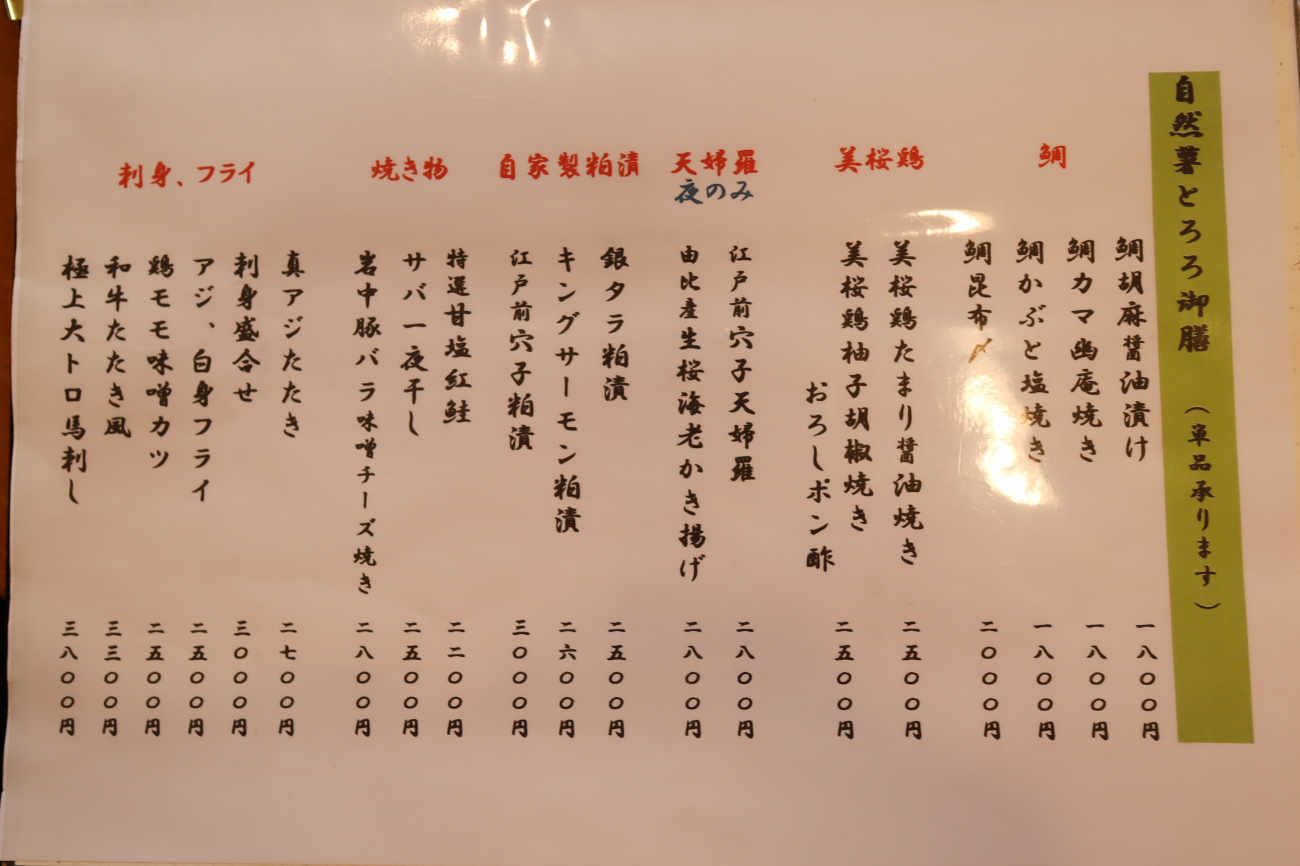 自然薯とろろ御膳 （単品承ります）
鯛
鯛胡麻醤油漬け 一八〇〇円
鯛カマ幽庵焼き 一八〇〇円
鯛かぶと塩焼き 一八〇〇円
鯛昆布〆 二〇〇〇円
美桜鶏
美桜鶏たまり醤油焼き 二五〇〇円
美桜鶏柚子胡椒焼き 二五〇〇円
おろしポン酢
天婦羅
夜のみ
江戸前穴子天婦羅 二八〇〇円
由比産生桜海老かき揚げ 二八〇〇円
自家製粕漬
銀タラ粕漬 二五〇〇円
キングサーモン粕漬 二六〇〇円
江戸前穴子粕漬 三〇〇〇円
焼き物
特選甘塩紅鮭 二二〇〇円
サバ一夜干し 二五〇〇円
岩中豚バラ味噌チーズ焼き 二八〇〇円
刺身、フライ
真アジたたき 二七〇〇円
刺身盛合せ 三〇〇〇円
アジ、白身フライ 二五〇〇円
鶏モモ味噌カツ 二五〇〇円
和牛たたき風 三三〇〇円
極上大トロ馬刺し 三八〇〇円